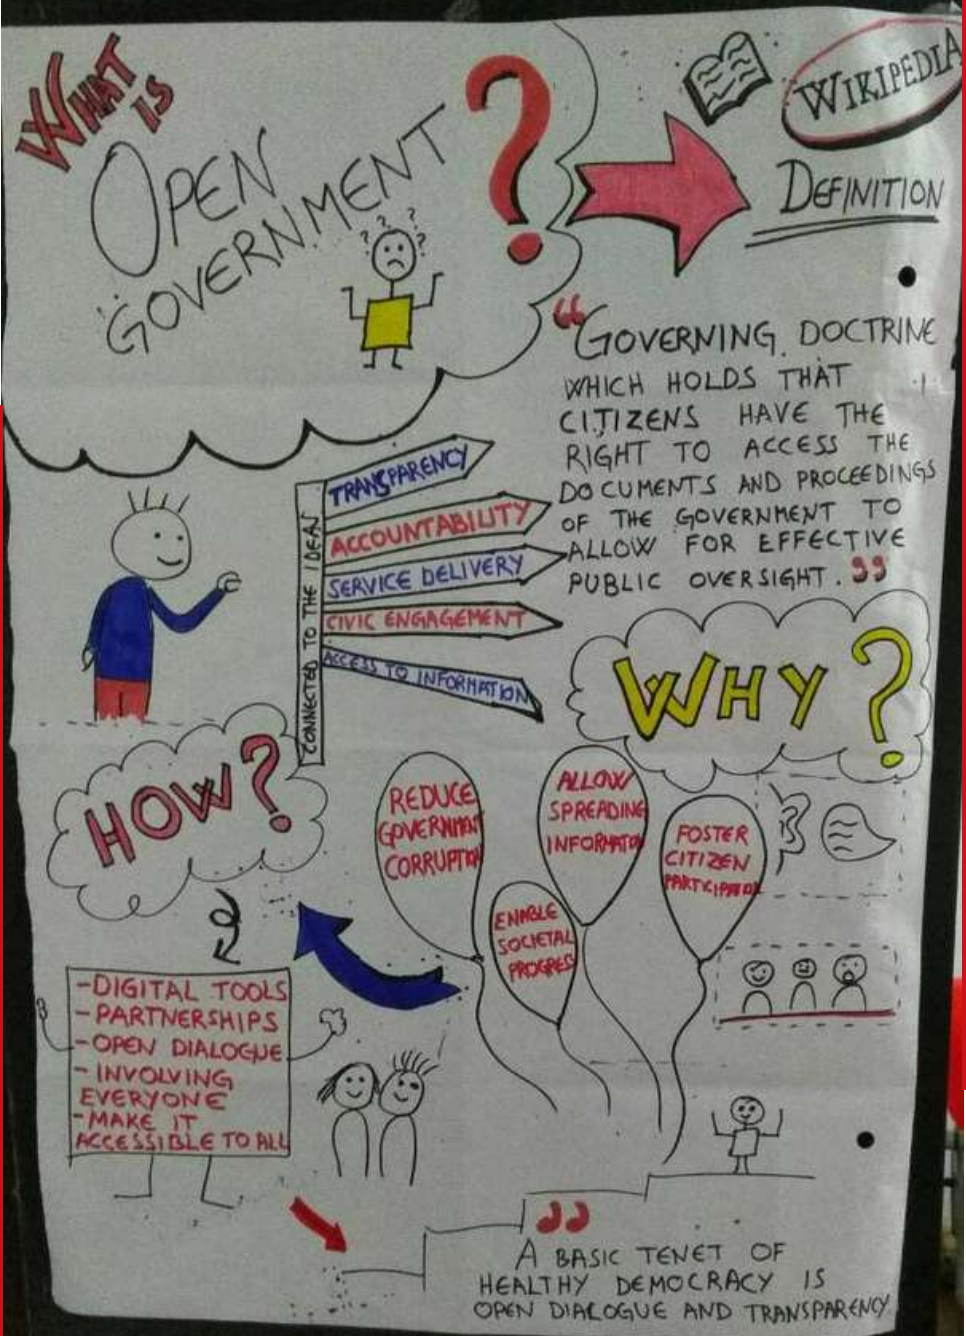 WHAT
IS
OPEN
GOVERNMENT
?
? ? ? ?
WIKIPEDIA
DEFINITION
“GOVERNING DOCTRINE
WHICH HOLDS THAT
CITIZENS HAVE THE
RIGHT TO ACCESS THE
DOCUMENTS AND PROCEEDINGS
OF THE GOVERNMENT TO
ALLOW FOR EFFECTIVE
PUBLIC OVERSIGHT.”
CONNECTED TO THE IDEAS
TRANSPARENCY
ACCOUNTABILITY
SERVICE DELIVERY
CIVIC ENGAGEMENT
ACCESS TO INFORMATION
WHY?
REDUCE
GOVERNMENT
CORRUPTION
ENABLE
SOCIETAL
PROGRESS
ALLOW
SPREADING
INFORMATION
FOSTER
CITIZEN
PARTICIPATION
HOW?
-DIGITAL TOOLS
-PARTNERSHIPS
-OPEN DIALOGUE
-INVOLVING
EVERYONE
-MAKE IT
ACCESSIBLE TO ALL
”
A BASIC TENET OF
HEALTHY DEMOCRACY IS
OPEN DIALOGUE AND TRANSPARENCY